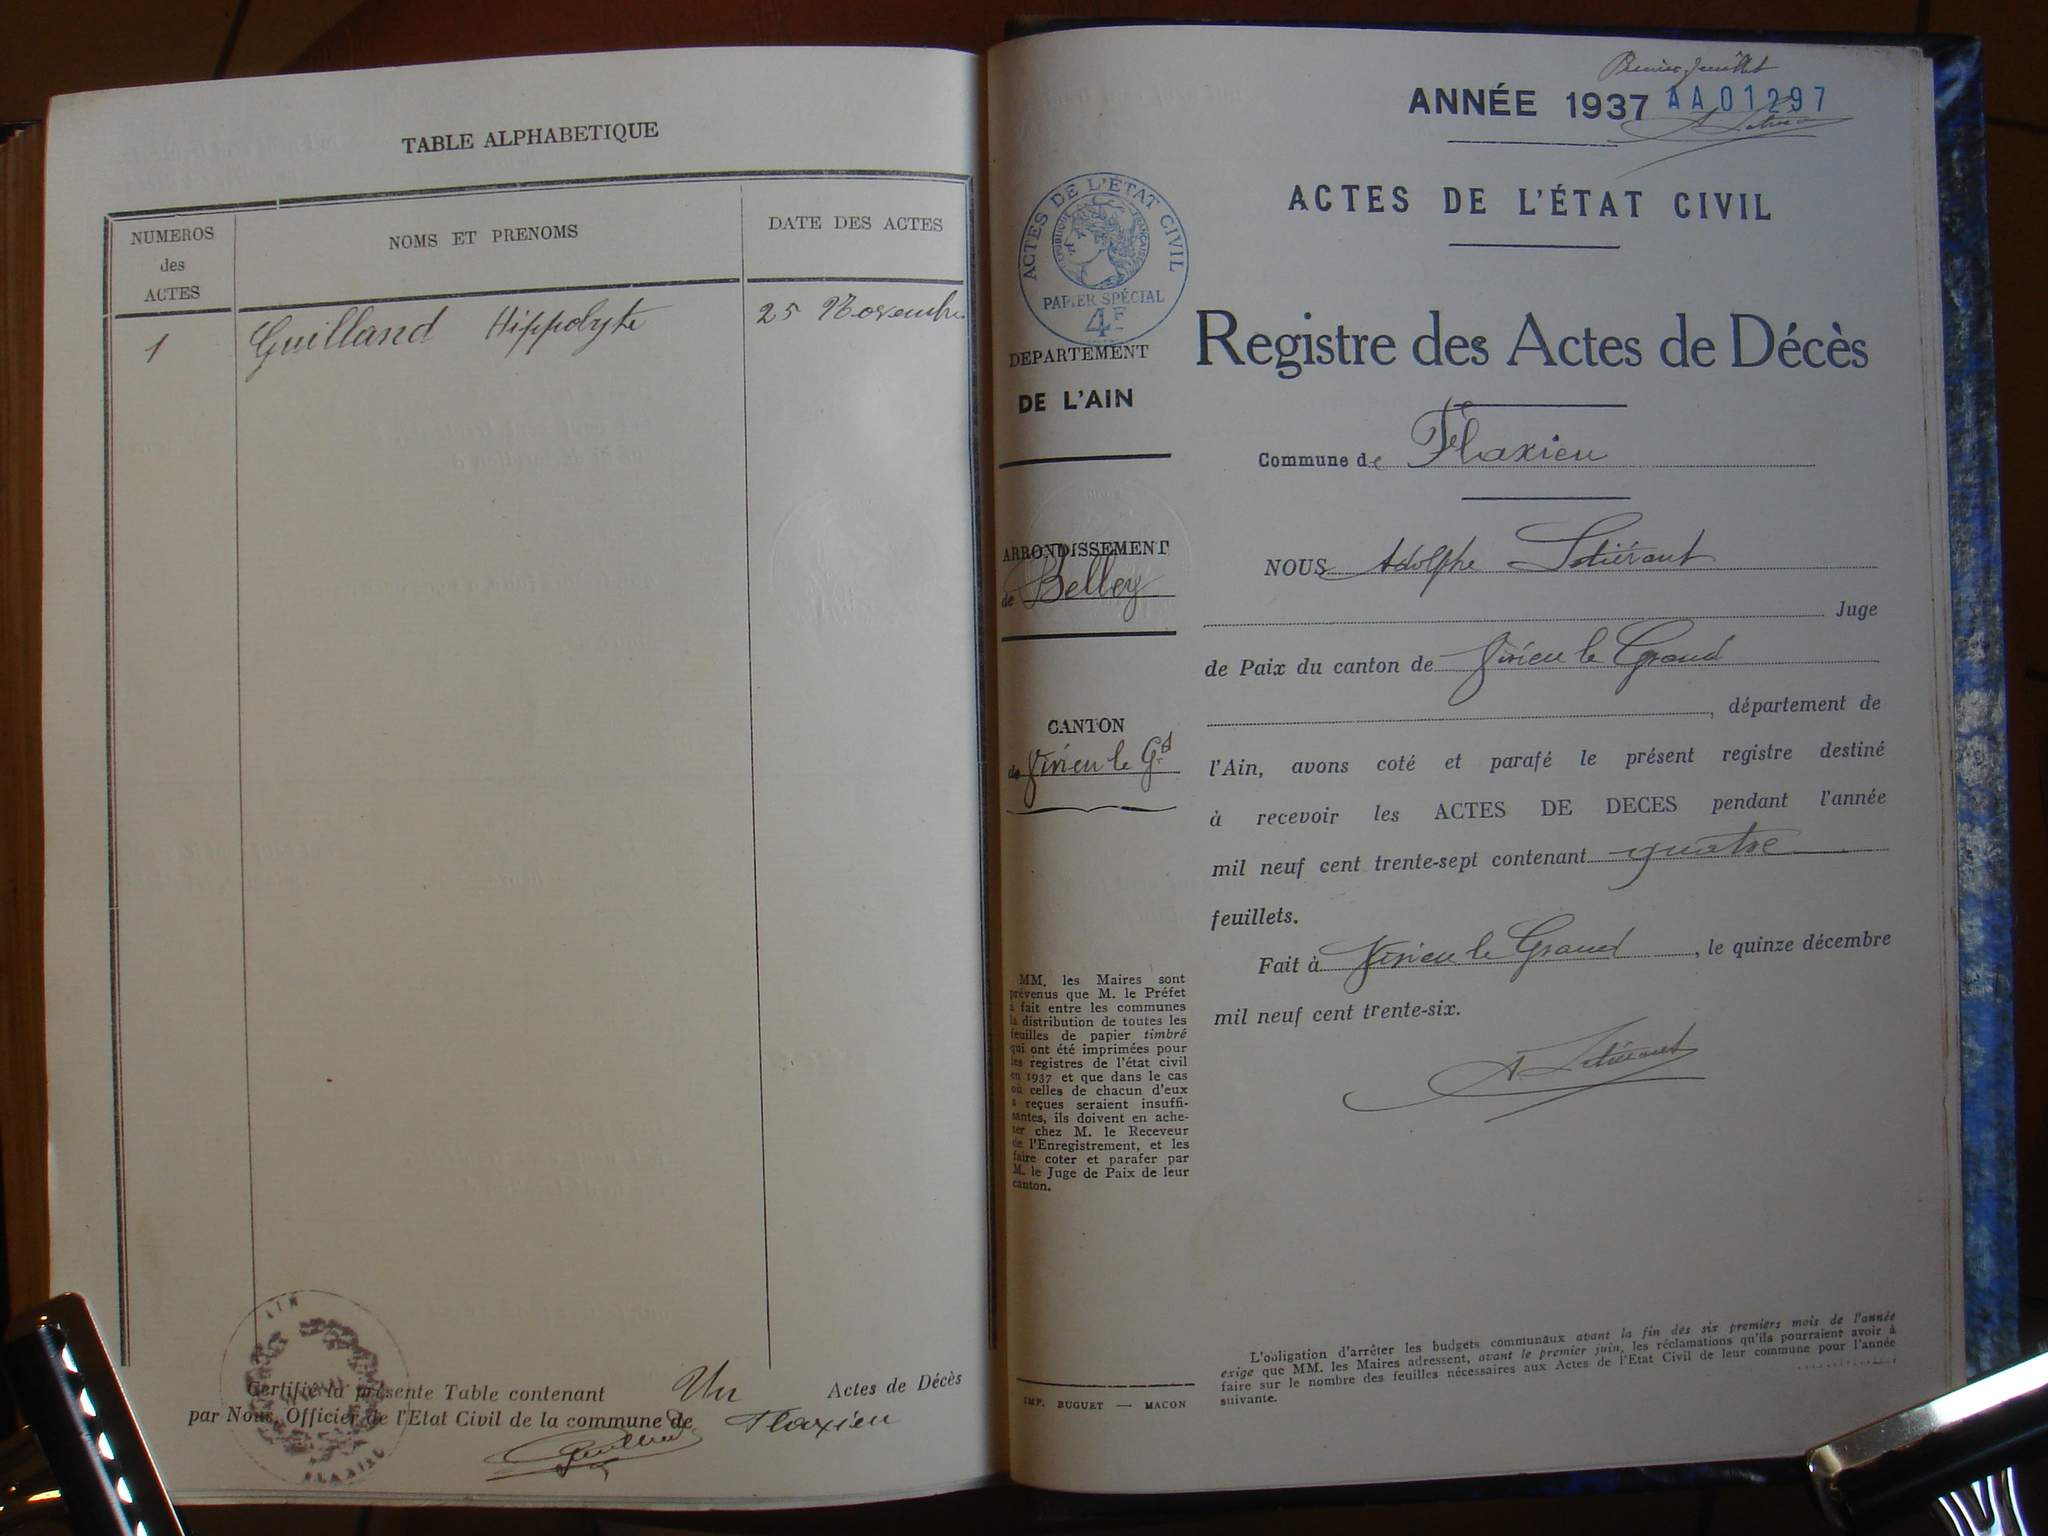 TABLE ALPHABETIQUE
NUMEROS
des
ACTES
NOMS ET PRENOMS
DATE DES ACTES
1
Guilland Hippolyte
25 Novembre
Certifié la présente Table contenant Un Actes de Décès
par Nous, Officier de l'Etat Civil de la commune de Flaxieu
AIN
FLAXIEU
Premier feuillet
ANNÉE 1937 AA01297
ACTES DE L'ÉTAT CIVIL
ACTES DE L'ÉTAT CIVIL
RÉPUBLIQUE FRANÇAISE
PAPIER SPÉCIAL
4F
DEPARTEMENT
DE L'AIN
Registre des Actes de Décès
Commune de Flaxieu
ARRONDISSEMENT
de Belley
NOUS Adolphe
Juge
de Paix du canton de Virieu le Grand
, département de
CANTON
de Virieu le Gd
l'Ain, avons coté et parafé le présent registre destiné
à recevoir les ACTES DE DECES pendant l'année
mil neuf cent trente-sept contenant quatre
feuillets.
Fait à Virieu le Grand, le quinze décembre
mil neuf cent trente-six.
MM. les Maires sont
prévenus que M. le Préfet
a fait entre les communes
la distribution de toutes les
feuilles de papier timbré
qui ont été imprimées pour
les registres de l'état civil
en 1937 et que dans le cas
où celles de chacun d'eux
a reçues seraient insuffi-
santes, ils doivent en ache-
ter chez M. le Receveur
de l'Enregistrement, et les
faire coter et parafer par
M. le Juge de Paix de leur
canton.
IMP. BUGUET — MACON
L'obligation d'arrêter les budgets communaux avant la fin des six premiers mois de l'année
exige que MM. les Maires adressent, avant le premier juin, les réclamations qu'ils pourraient avoir à
faire sur le nombre des feuilles nécessaires aux Actes de l'Etat Civil de leur commune pour l'année
suivante.